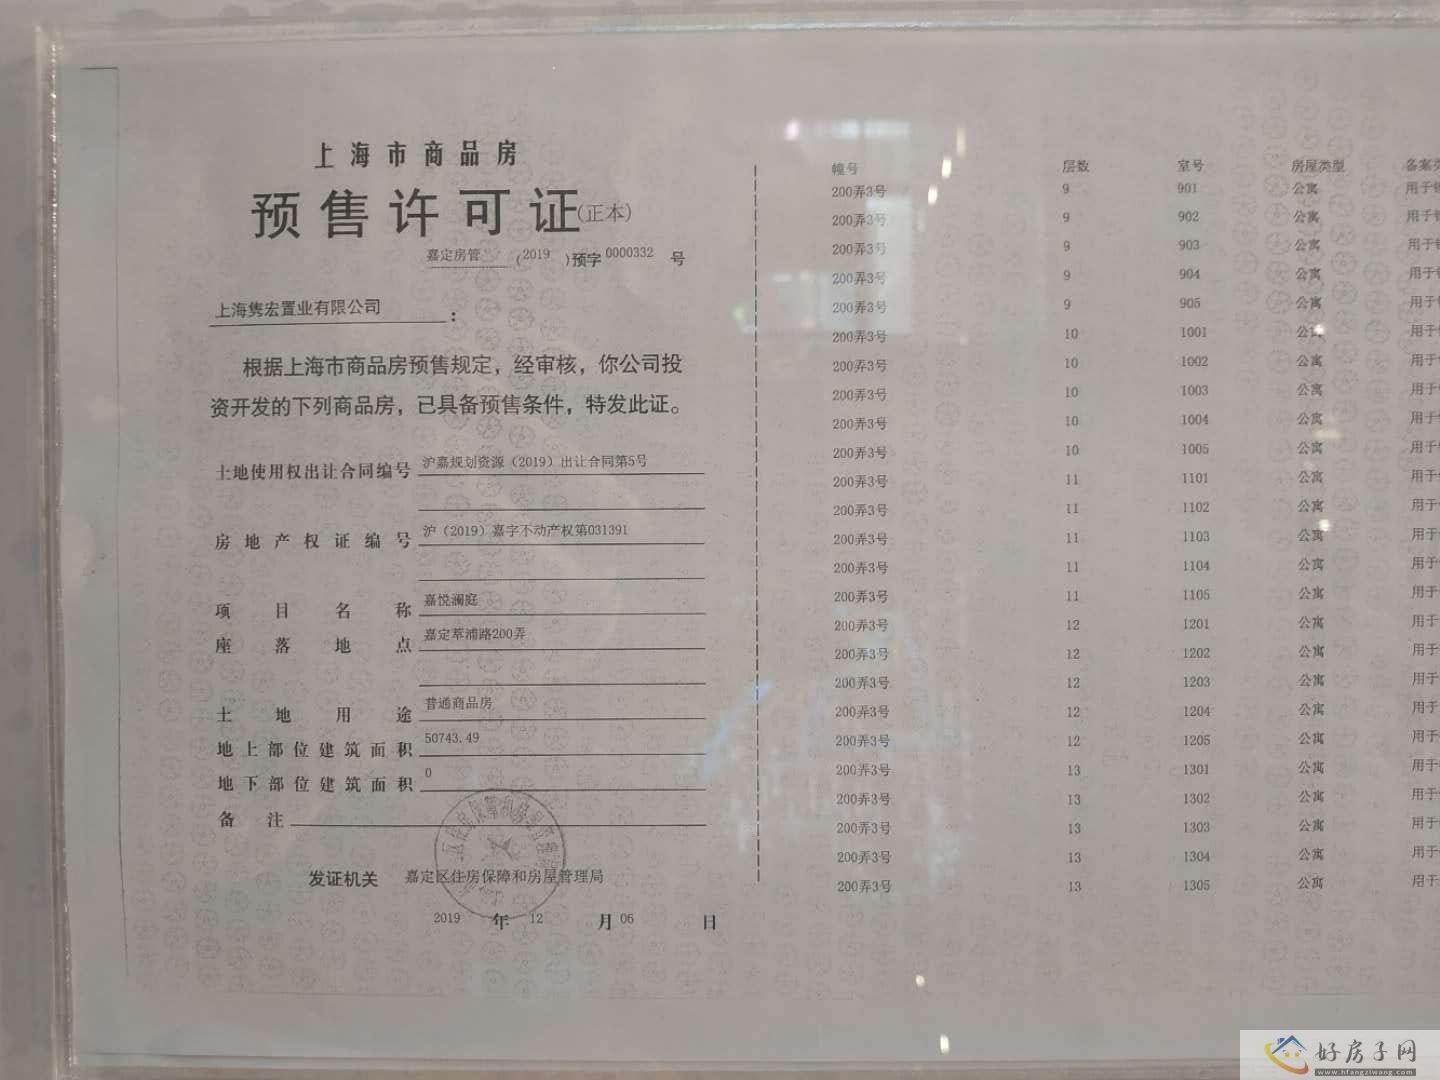 上海市商品房
预售许可证(正本)
嘉定房管 (2019)预字0000332号
上海隽宏置业有限公司：
根据上海市商品房预售规定，经审核，你公司投
资开发的下列商品房，已具备预售条件，特发此证。
土地使用权出让合同编号 沪嘉规划资源（2019）出让合同第5号
房地产权证编号 沪（2019）嘉字不动产权第031391
项目名称 嘉悦澜庭
座落地点 嘉定萃浦路200弄
土地用途 普通商品房
地上部位建筑面积 50743.49
地下部位建筑面积 0
备注
发证机关 嘉定区住房保障和房屋管理局
2019年12月06日
幢号 层数 室号 房屋类型 备案类
200弄3号 9 901 公寓 用于
200弄3号 9 902 公寓 用于
200弄3号 9 903 公寓 用于
200弄3号 9 904 公寓 用于
200弄3号 9 905 公寓 用于
200弄3号 10 1001 公寓 用于
200弄3号 10 1002 公寓 用于
200弄3号 10 1003 公寓 用于
200弄3号 10 1004 公寓 用于
200弄3号 10 1005 公寓 用于
200弄3号 11 1101 公寓 用于
200弄3号 11 1102 公寓 用于
200弄3号 11 1103 公寓 用于
200弄3号 11 1104 公寓 用于
200弄3号 11 1105 公寓 用于
200弄3号 12 1201 公寓 用于
200弄3号 12 1202 公寓 用于
200弄3号 12 1203 公寓 用于
200弄3号 12 1204 公寓 用于
200弄3号 12 1205 公寓 用于
200弄3号 13 1301 公寓 用于
200弄3号 13 1302 公寓 用于
200弄3号 13 1303 公寓 用于
200弄3号 13 1304 公寓 用于
200弄3号 13 1305 公寓 用于
好房子网
www.hfangziwang.com